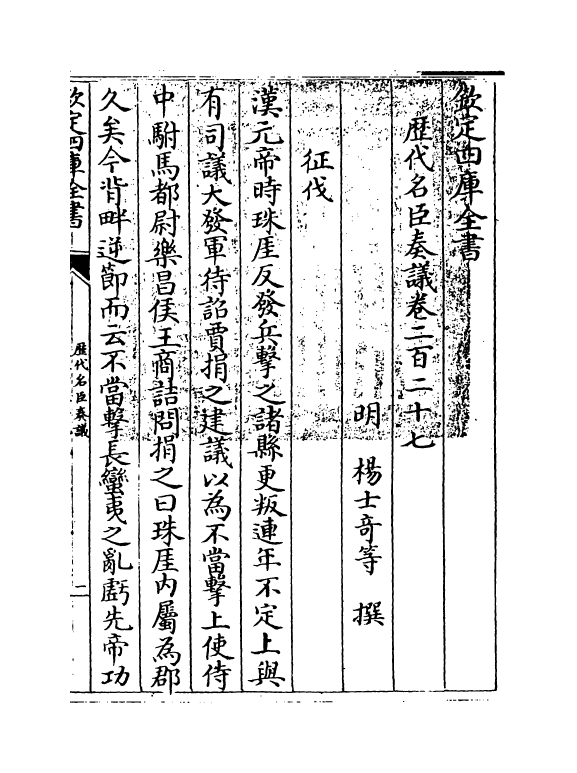 欽定四庫全書
歴代名臣奏議卷二百二十七
明 楊士竒等 撰
征伐
漢元帝時珠厓反發兵擊之諸縣更叛連年不定上與
有司議大發軍待詔賈捐之建議以為不當擊上使侍
中駙馬都尉樂昌侯王商詰問捐之曰珠厓内屬為郡
久矣今背畔逆節而云不當擊長蠻夷之亂虧先帝功
欽定四庫全書
歴代名臣奏議